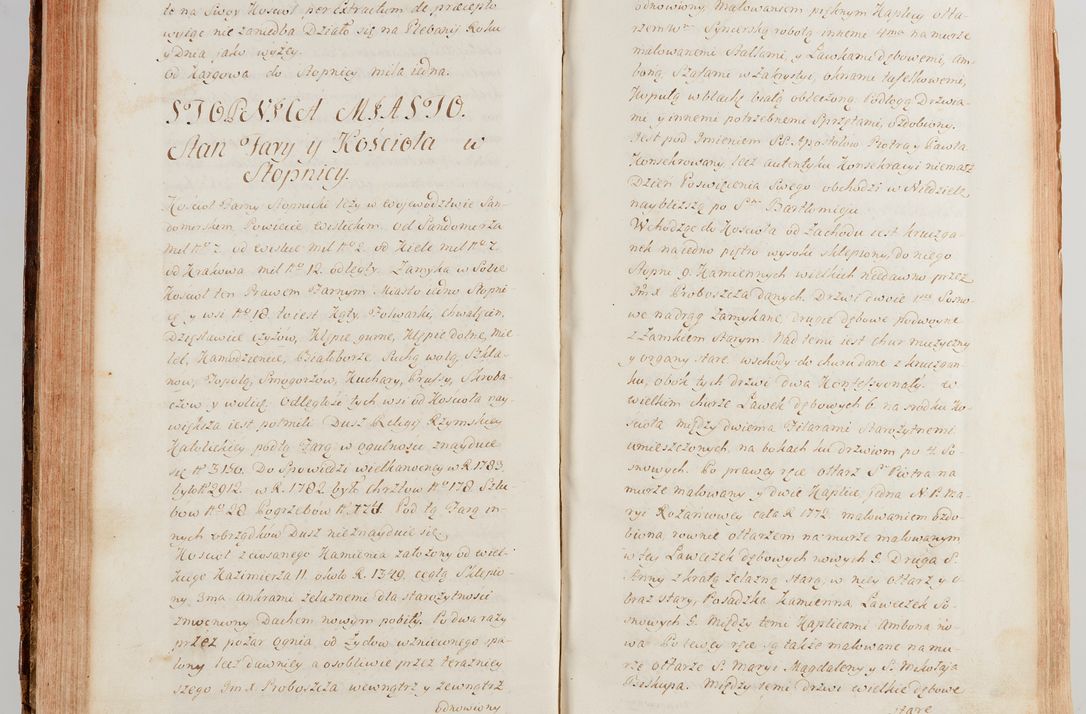 te na Swoy Koscioł per extractum de præcepto
wysige nie zaniedba Działo się na Plebany Roku
y Dnia jako wyżey.
od Kargowa do Stopnicy mila iedna.
STOPNICA MIASTO.
Stan Fary y Kościoła w
Stopnicy.
Koscioł Farny Stopnicki leży w Wojewodztwie San-
domirskim Powiecie wislickim. od Sandomierza
mil No 7. od wislice mil No 2. od Kielc mil No 7.
od Krakowa mil No 12. odległy. Zamyka w Sobie
Koscioł ten Prawem Farnym Miasto iedno Stopni
cę y wsi No 18. to iest Kąty, Folwarki, Chwalęcin,
Dziesławice Czyżow, Klępie gurne, Klępie dolne, Mie
tel, Kamodzienice, Białoborze, Suchą wolą, Szkla-
now, Topolą, Smogorzow, Kuchary, Prussy, Skroba
czow y wolicę. Odległość tych wsi od Koscioła nay-
większa iest pułmili Dusz Religy Rzymskiey
Katolickiey podłg Farą w ogulnosci znayduie
się No 3150. Do Spowiedzi wielkanocney w R. 1783.
było No 2912. w R. 1782. było chrztow No 178 Szlu
bow No 28 Pogrzebow No 174 Pod tą Farą in-
nych obrządkow Dusz nieznayduie się,
Koscioł z ciosanego Kamienia założony od wiel-
kiego Kazimierza II. około R. 1349. cegłą Sklepio-
ny 3ma Ankrami żelaznemi dla starożytności
zmocniony Dachem nowym pobity. Po dwa razy
przez pożar Ognia od Żydow wznieconego spa-
lony lecz dawniey a osobliwie przez terazniey
szego Jm X Proboszcza wewnątrz y zewnątrz
odnowiony
odnowiony, malowaniem pięknym Kaplicy ołta-
rzem Snycerską robotą innemi 4ma na murze
malowanemi Stallami, y Lawkami dębowemi, am-
boną, Szafami w Zakrystyi, oknami tafelkowemi,
Kopułą w blachę białą obleczoną Podłogą Drzwia-
mi y innemi potrzebnemi Sprzętami, ozdobiony.
Jest pod Jmieniem SS. Apostołow Piotra y Pawła
Konsekrowany lecz autentyku Konsekracyi niemasz
Dzień Poswięcenia Swego obchodzi w Niedzielę
naybliższą po S. Bartłomieju
Wchodząc do Koscioła od Zachodu iest kruczga-
nek na iedno piętro wysoki sklepiony, do niego
stopni 9. Kamiennych wielkich niedawno przez
Jm X Proboszcza danych. Drzwi dwoie 1sze Sosno-
we na drąg Zamykane, drugie dębowe podwoyne
z Zamkiem starym. Nad temi iest chur muzyczny
y organy stare. wschody do churu dane z kruczgan-
ku, obok tych drzwi dwa Konfessyonały. w
wielkim churze Lawek dębowych 6. na srodku Ko-
scioła między dwiema Filarami Starożytnemi
umieszczonych, na bokach ku drzwiom po 4. So-
snowych Po prawey ręce ołtarz S. Piotra na
murze malowany y dwie Kaplice, Jedna N. P. Ma-
ryi Rożańcowey cała R 1772. malowaniem Ozdo-
biona rownie ołtarzem na murze malowanym
w tey Ławeczek dębowych nowych 6. Druga S.
Anny z kratą żelazną starą, w niey ołtarz y o-
braz stary, Posadzka Kamienna Laweczek So-
snowych 6. Między temi Kaplicami ambona no-
wa Po lewey ręce są także malowane na mu-
rze ołtarze S. Maryi Magdaleny y S. Mikołaja
Biskupa. Między temi drzwi wielkie dębowe
stare